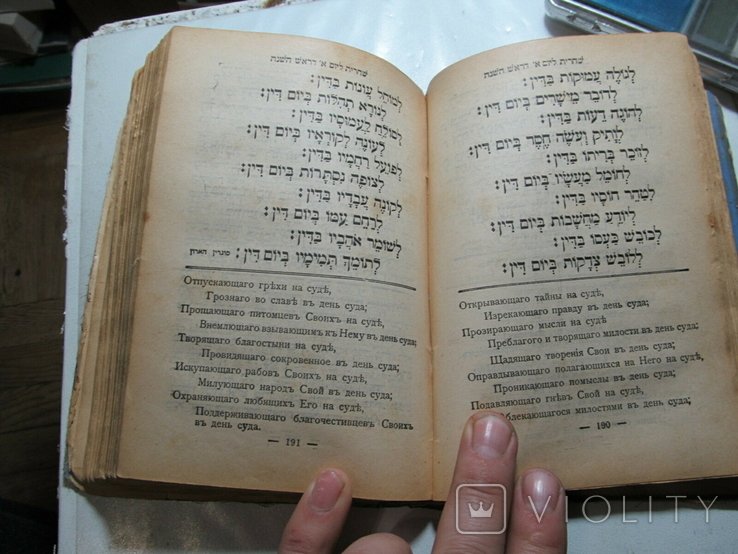 שחרית ליום א׳ דראש השנה
לְגוֹלֶה עֲמוּקוֹת בַּדִּין:
לְדוֹבֵר מֵישָׁרִים בְּיוֹם דִּין:
לְהוֹגֶה דֵעוֹת בַּדִּין:
לְוָתִיק וְעֹשֶׂה חֶסֶד בְּיוֹם דִּין:
לְזוֹכֵר בְּרִיתוֹ בַּדִּין:
לְחוֹמֵל מַעֲשָׂיו בְּיוֹם דִּין:
לְטַהֵר חוֹסָיו בַּדִּין:
לְיוֹדֵעַ מַחֲשָׁבוֹת בְּיוֹם דִּין:
לְכוֹבֵשׁ כַּעְסוֹ בַּדִּין:
לְלוֹבֵשׁ צְדָקוֹת בְּיוֹם דִּין:
Открывающаго тайны на судѣ,
Изрекающаго правду в день суда;
Прозирающаго мысли на судѣ
Преблаго и творящаго милости въ день суда;
Щадящаго творенія Свои в день суда;
Оправдывающаго полагающихся на Него на судѣ,
Проникающаго помыслы в день суда;
Подавляющаго гнѣвъ Свой на судѣ,
блекающагося милостями въ день суда;
— 190 —
שחרית ליום א׳ דראש השנה
לְמוֹחֵל עֲוֹנוֹת בַּדִּין:
לְנוֹרָא תְהִלּוֹת בְּיוֹם דִּין:
לְסוֹלֵחַ לַעֲמוּסָיו בַּדִּין:
לְעוֹנֶה לְקוֹרְאָיו בְּיוֹם דִּין:
לְפוֹעֵל רַחֲמָיו בַּדִּין:
לְצוֹפֶה נִסְתָּרוֹת בְּיוֹם דִּין:
לְקוֹנֶה עֲבָדָיו בַּדִּין:
לְרַחֵם עַמּוֹ בְּיוֹם דִּין:
לְשׁוֹמֵר אֹהֲבָיו בַּדִּין:
לְתוֹמֵךְ תְּמִימָיו בְּיוֹם דִּין: סוגרין הארון
Отпускающаго грѣхи на судѣ,
Грознаго во славѣ в день суда;
Прощающаго питомцевъ Своихъ на судѣ,
Внемлющаго взывающимъ к Нему в день суда;
Творящаго благостыни на судѣ,
Провидящаго сокровенное въ день суда;
Искупающаго рабовъ Своихъ на судѣ,
Милующаго народъ Свой в день суда;
Охраняющаго любящихъ Его на судѣ,
Поддерживающаго благочестивцевъ Своихъ
въ день суда.
— 191 —
VIOLITY